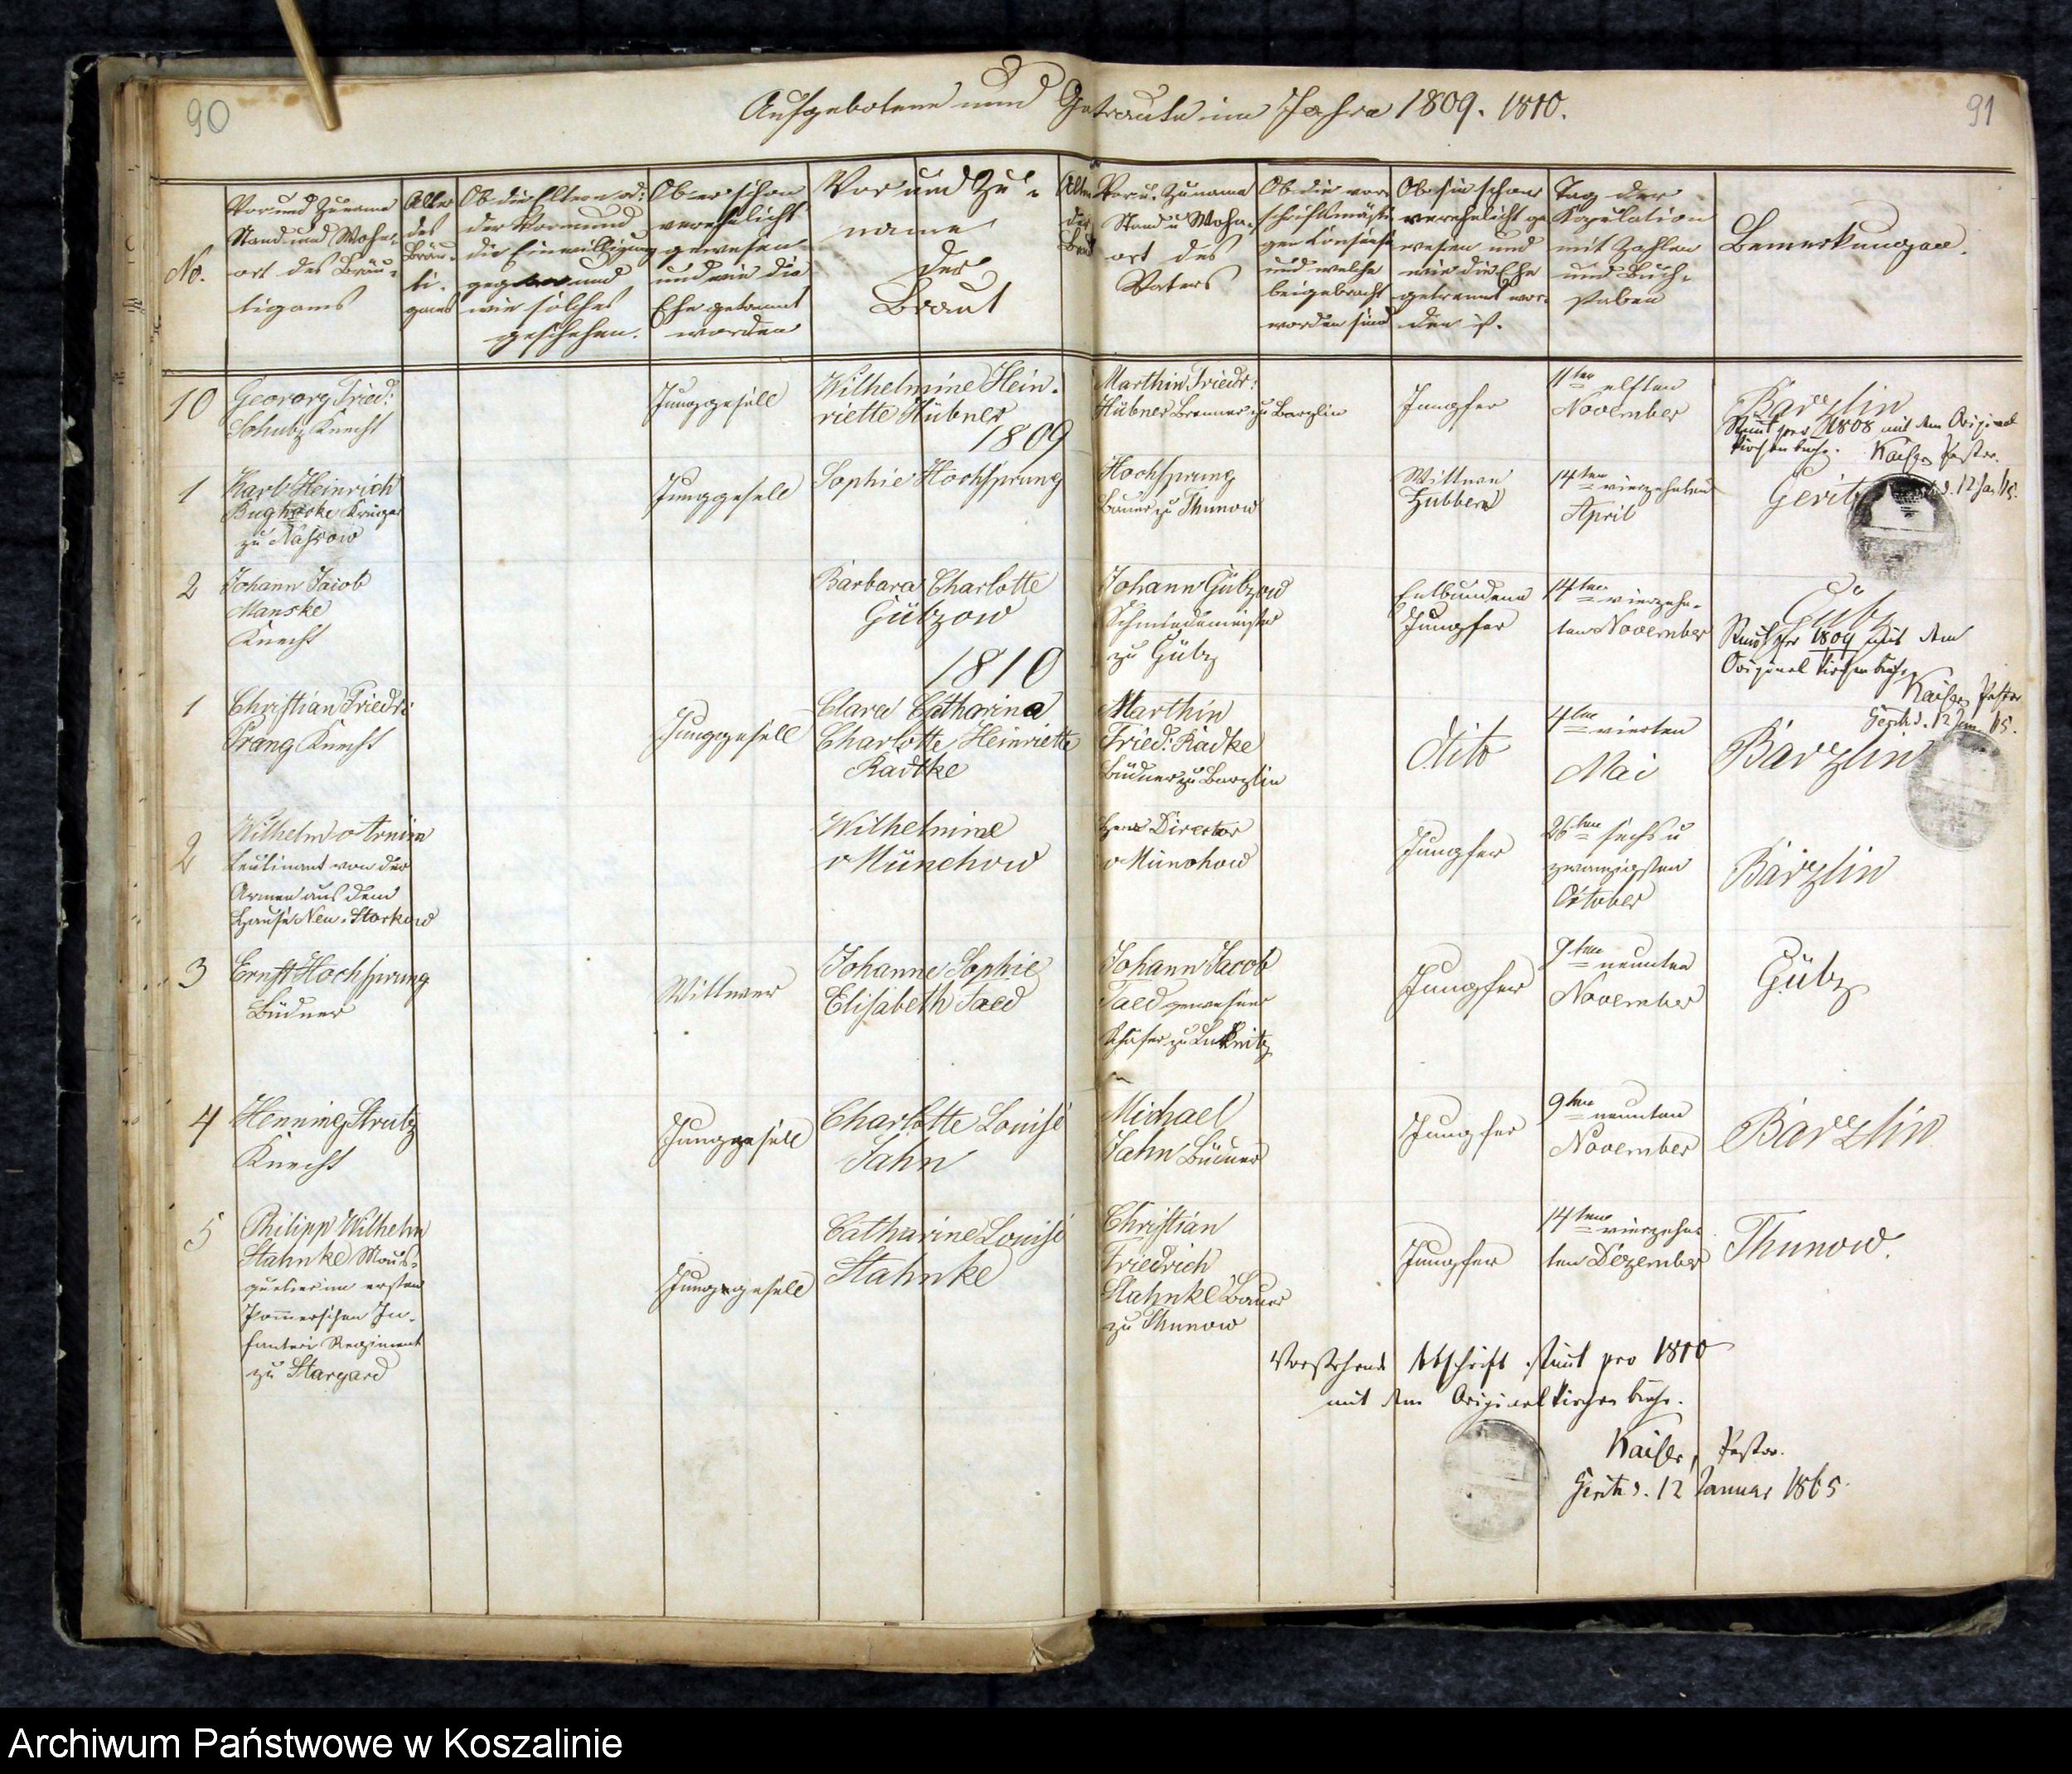 90
Aufgebotene und Getraute im Jahre 1809. 1810.
91
No.
Vor und Zuname
Stand und Wohn-
ort des Bräu-
tigams
Alter
des
Bräu-
ti-
gams
Ob die Eltern od:
der Vormund
die Einwilligung
gegeben und
wie solches
geschehen.
Ob er schon
verehelicht
gewesen
und wie die
Ehe getrennt
worden
Vor und Zu-
name
der
Braut
Alter
der
Braut
Vor u. Zuname
Stand u Wohn-
ort des
Vaters
Ob die vor-
schriftsmäßi-
gen Consense
und welche
beigebracht
worden sind
Ob sie schon
verehelicht ge
wesen und
wie die Ehe
getrennt wor-
den ist.
Tag der
Kopulation
mit Zahlen
und Buch-
staben
Bemerkungen.
10
Georg Fried:
Schulz Knecht
Junggesell
Wilhelmine Hein-
riette Hübner
Marthin Friedr:
Hübner Brenner zu Barzlin
Jungfer
11ten elften
November
Barzlin
Stimmt pro 1808 mit dem Original
Kirchenbuche. Kaiser Pastor.
1809
1
Karl Heinrich
Krüger
zu Nassow
Junggesell
Sophie Hochsprung
Hochsprung
Bauer zu Thunow
Wittwe
Hubbert
14ten vierzehnten
April
Geritz
d. 12 Jan.
2
Johann Jacob
Manske
Knecht
Barbara Charlotte
Gützow
Johann Gützow
Schmiedemeister
zu Gütz
Entbundene
Jungfer
14ten vierzehn-
ten November
Gütz
Stimmt pro 1809 mit dem
Original Kirchenbuche
Kaiser, Pastor
Geritz d. 12 Jan. 65.
1810
1
Christian Friedr:
Prang Knecht
Junggesell
Clara Catharina
Charlotte Heinriette
Radtke
Marthin
Fried: Radke
Büdner zu Barzlin
dito
4ten vierten
Mai
Barzlin
2
Wilhelm v Arnim
Leutinant von der
Armee aus dem
Hause Neu-Storkow
Wilhelmine
v Münchow
Herr Director
v Münchow
Jungfer
26ten sechs u
zwanzigsten
October
Barzlin
3
Ernst Hochsprung
Büdner
Wittwer
Johanne Sophie
Elisabeth Taed
Johann Jacob
Taed gewesener
Schäfer zu
Jungfer
9ten neunten
November
Gütz
4
Henning Strutz
Knecht
Junggesell
Charlotte Louise
Jahn
Michael
Jahn Büdner
Jungfer
9ten neunten
November
Barzlin
5
Philipp Wilhelm
Stahnke Mous-
quetier im ersten
Pommerschen In-
fanteri Regiment
zu Stargard
Junggesell
Catharine Louise
Stahnke
Christian
Friedrich
Stahnke Bauer
zu Thunow
Jungfer
14ten vierzehn-
ten Dezember
Thunow.
Vorstehende Abschrift stimmt pro 1810
mit dem Originalkirchenbuche.
Kaiser, Pastor.
Geritz d. 12 Januar 1865.
Archiwum Państwowe w Koszalinie